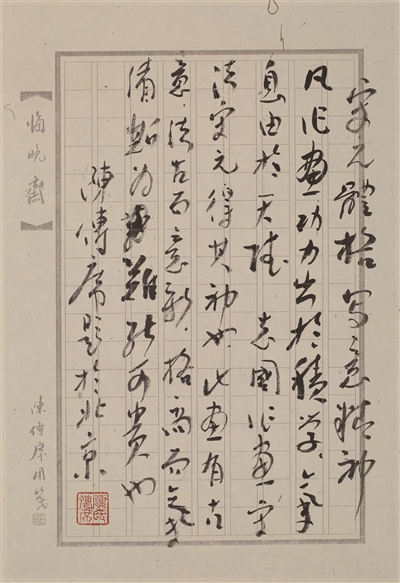 宋元體格 写意精神
凡作畫功力出於積学,氣
息由於天 志國作畫宗
法宋元得其神也,此畫有古
意,法古而意新,格高而氣
清,斯为難能可貴也
陳傳席題於北京
【悔晚齋】
陳傳席用箋